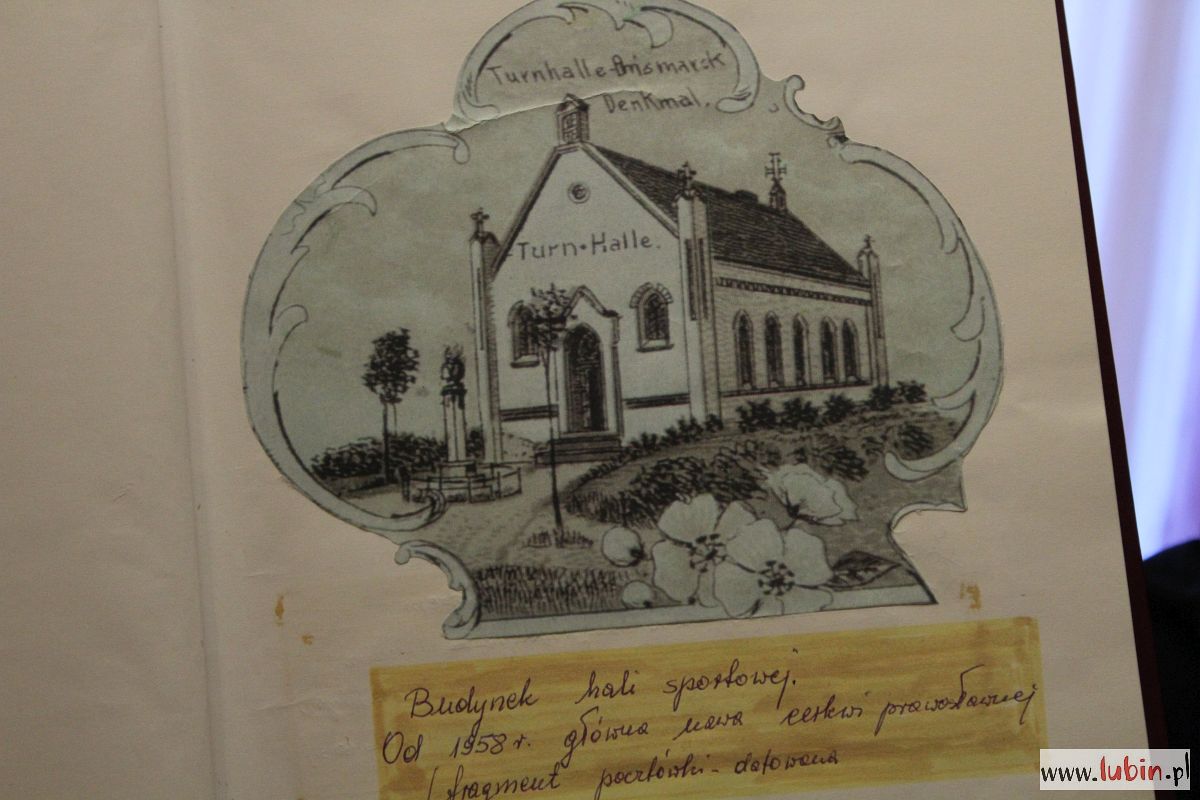 Turnhalle-Bismarck
Denkmal.
Turn-Halle.
Budynek hali sportowej.
Od 1958 r. główna nawa cerkwi prawosławnej
/fragment pocztówki - datowana
www.lubin.pl